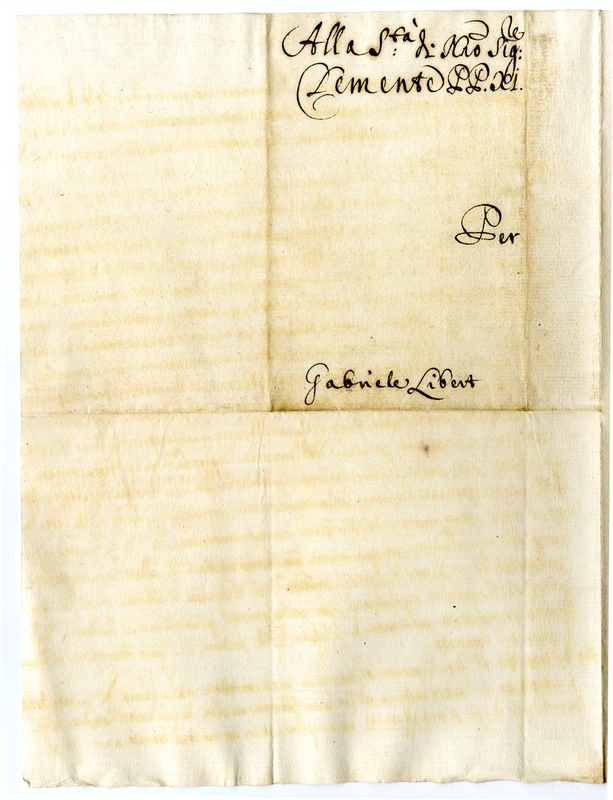 Alla S.tà di Nrõ Sig.re
Clemente PP. XI.
Per
Gabriele Libert